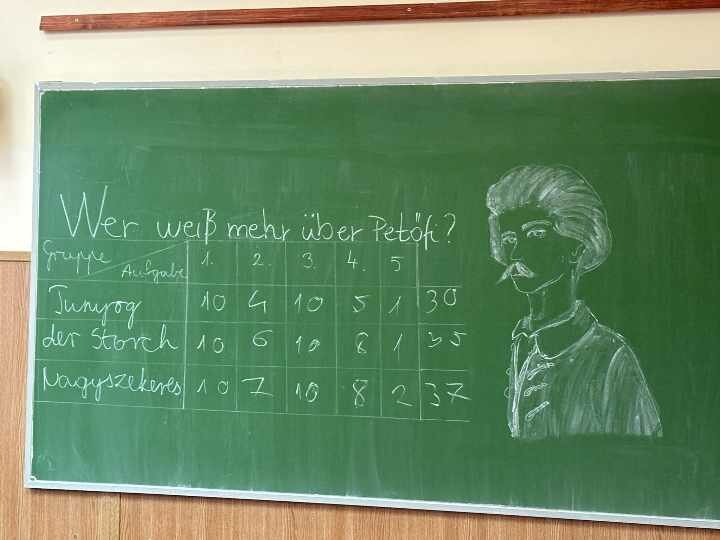 Wer weiß mehr über Petőfi?
Gruppe Aufgabe 1. 2. 3. 4. 5
Tunyog 10 4 10 5 1 30
der Storch 10 6 10 8 1 35
Nagyszekeres 10 7 10 8 2 37